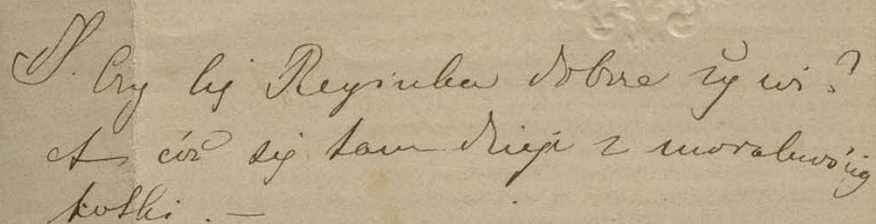 N. Czy cię Reginka dobrze żywi?
A cóż się tam dzieje z moralnością
kotki. —